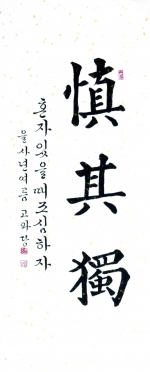 愼其獨
혼자 있을 때 조심하자
을사년 여름 고와당